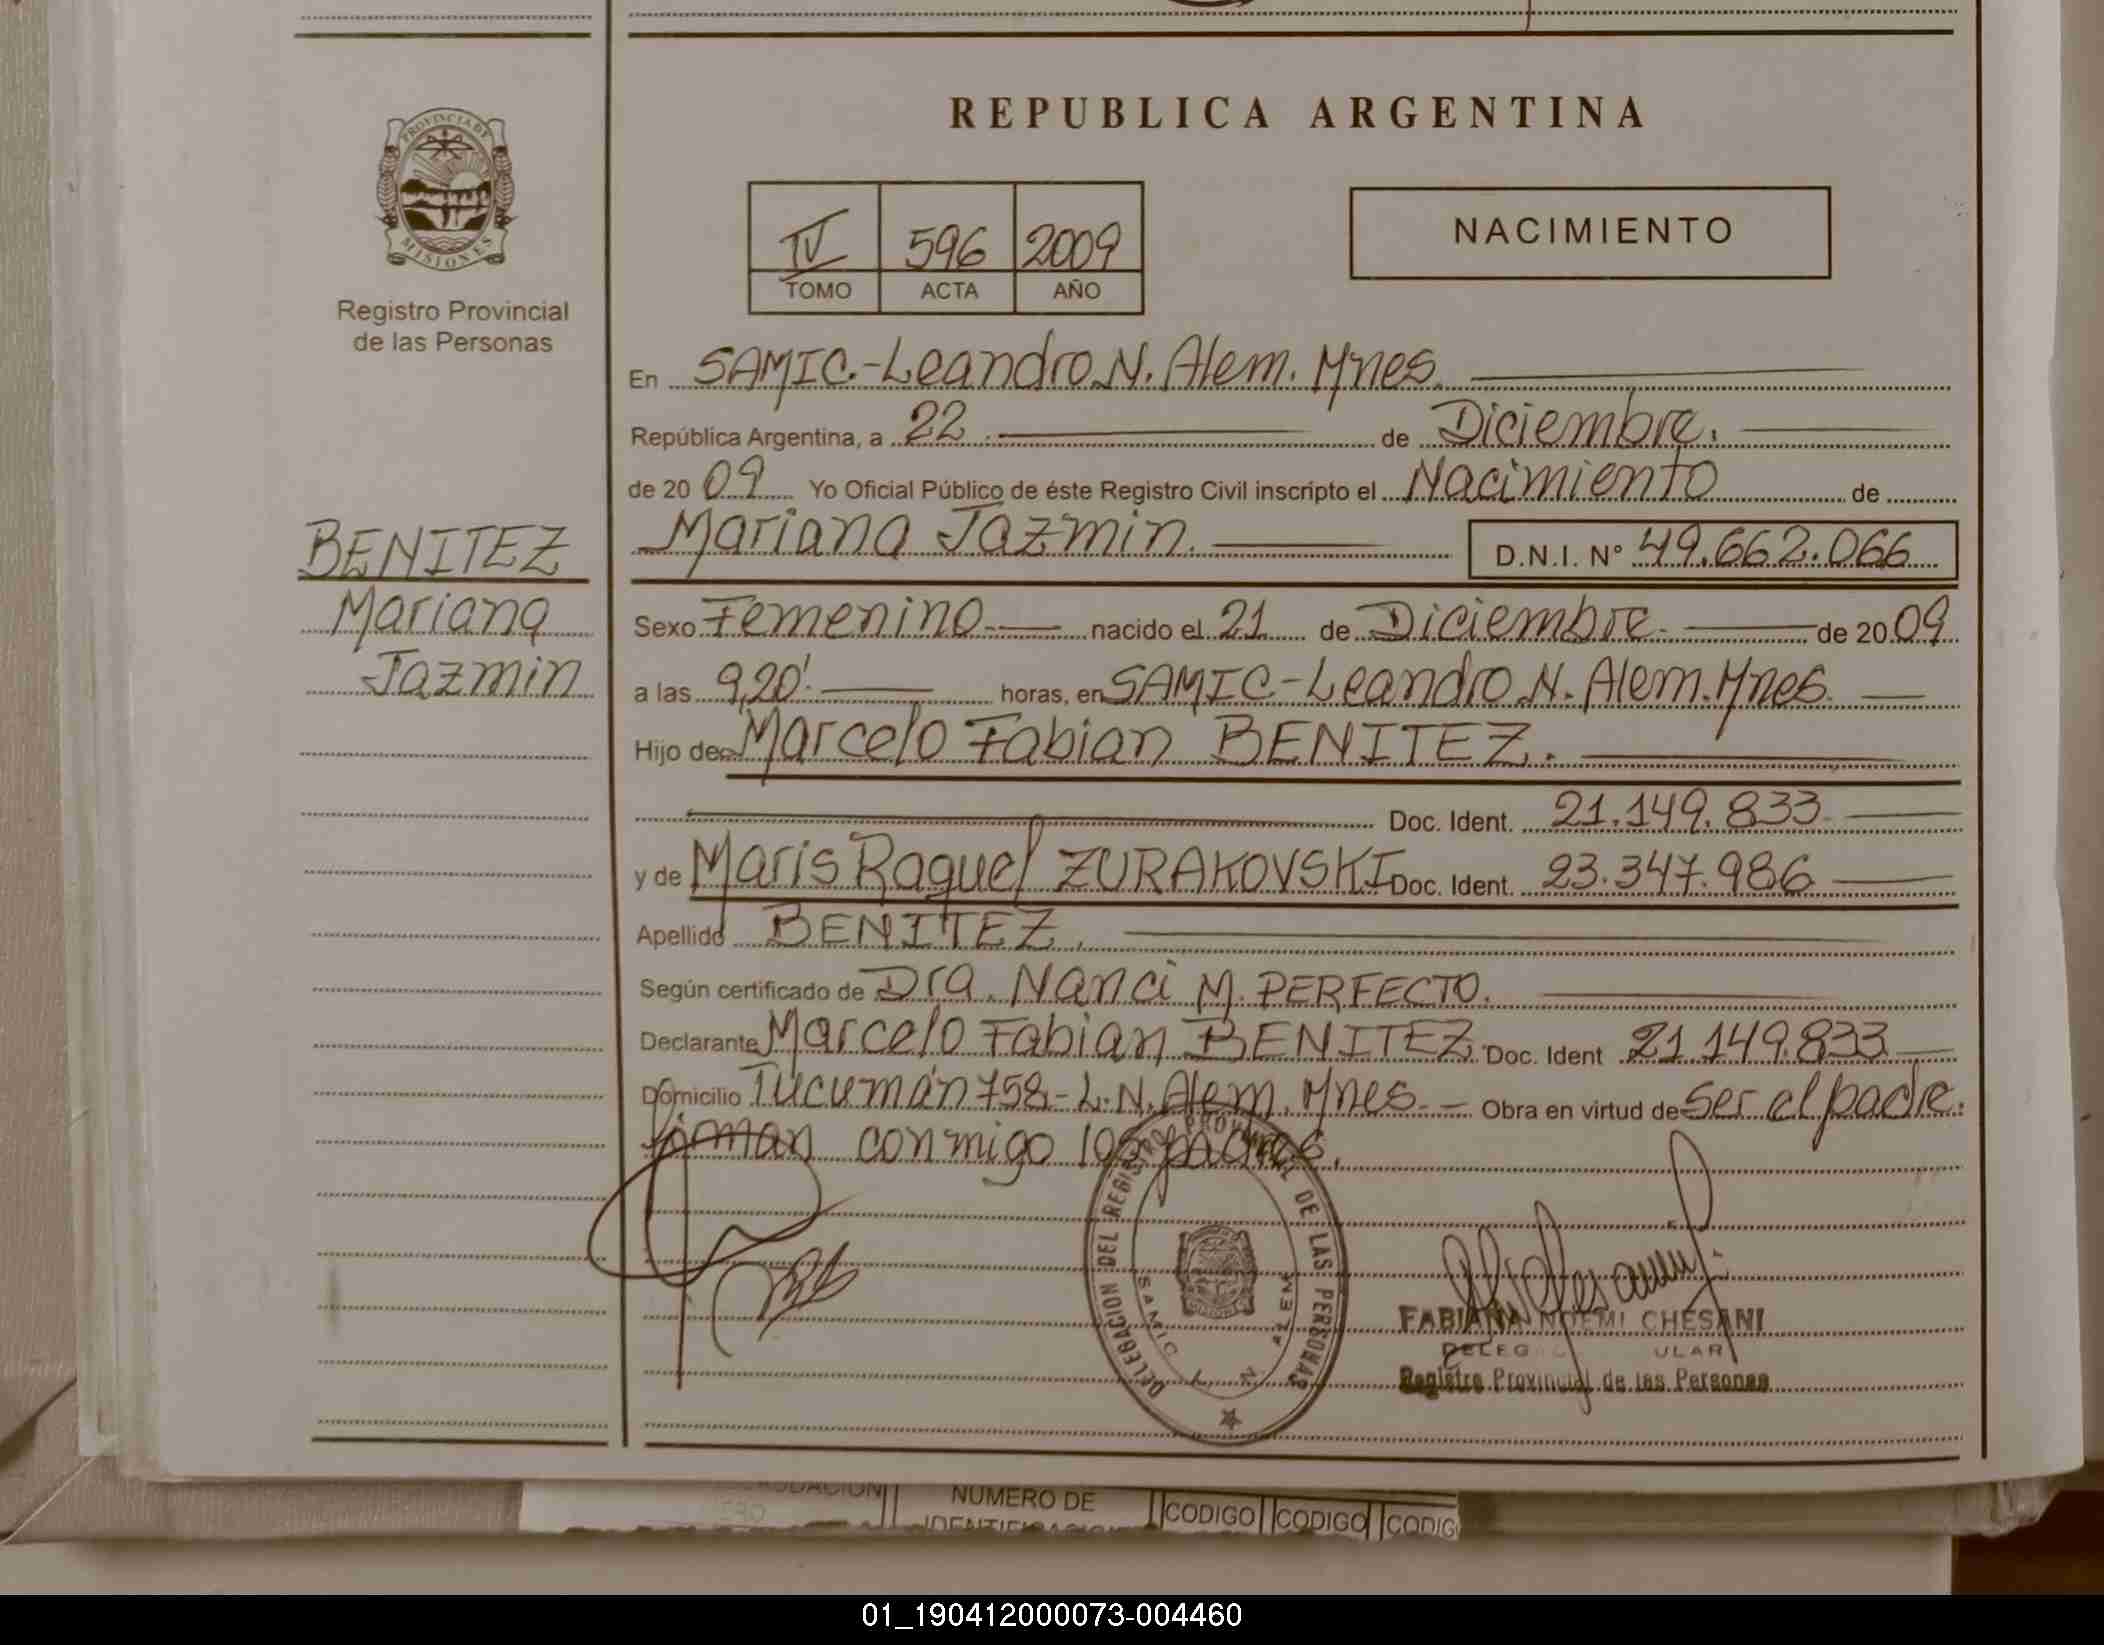 PROVINCIA DE
MISIONES
Registro Provincial
de las Personas
BENITEZ
Mariana
Jazmin
REPUBLICA ARGENTINA
IV 596 2009
TOMO ACTA AÑO
NACIMIENTO
En SAMIC.-Leandro N. Alem. Mnes.
República Argentina, a 22 de Diciembre.
de 20 09 Yo Oficial Público de éste Registro Civil inscripto el Nacimiento de
Mariana Jazmin. D.N.I. N° 49.662.066
Sexo Femenino.- nacido el 21 de Diciembre. de 20 09
a las 9,20'. horas, en SAMIC-Leandro N. Alem. Mnes.
Hijo de Marcelo Fabian BENITEZ.
Doc. Ident. 21.149.833
y de Maris Raquel ZURAKOVSKI Doc. Ident. 23.347.986
Apellido BENITEZ.
Según certificado de Dra. Nanci M. PERFECTO.
Declarante Marcelo Fabian BENITEZ. Doc. Ident 21.149.833
Domicilio Tucumán 758-L.N. Alem. Mnes.- Obra en virtud de ser el padre.
firman conmigo los padres.
DELEGACION DEL REGISTRO PROVINCIAL DE LAS PERSONAS
SAMIC L. N. ALEM
FABIANA NOEMI CHESANI
Registro Provincial de las Personas
NUMERO DE
CODIGO CODIGO CODIG
01_190412000073-004460